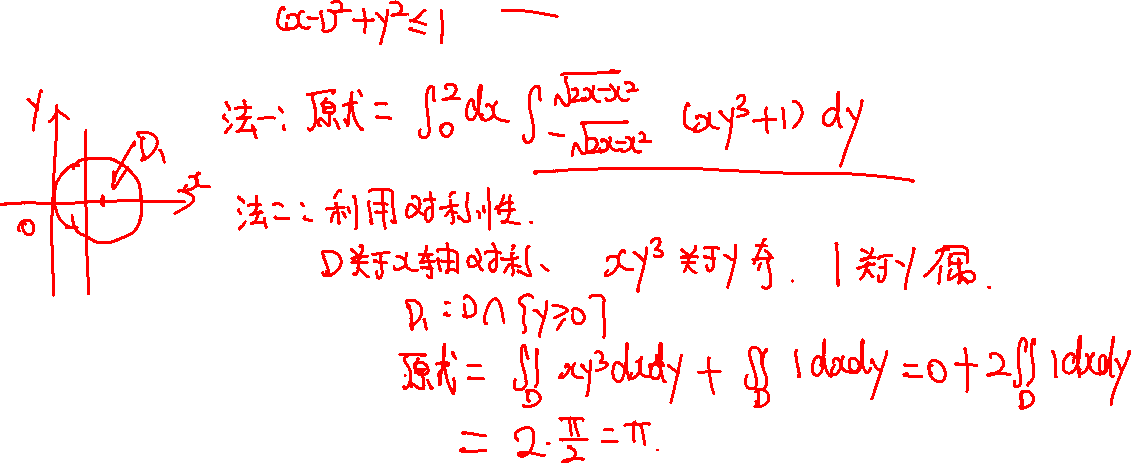 (x-1)²+y²≤1
法一: 原式 = ∫₀² dx ∫_{-√(2x-x²)}^{√(2x-x²)} (xy³+1) dy
y D₁ x 0
法二: 利用对称性.
D关于x轴对称、 xy³关于y奇. 1关于y偶.
D₁ : D∩{y≥0}
原式 = ∬_D xy³dxdy + ∬_D 1dxdy = 0+2∬_D 1dxdy
= 2·π/2 = π.